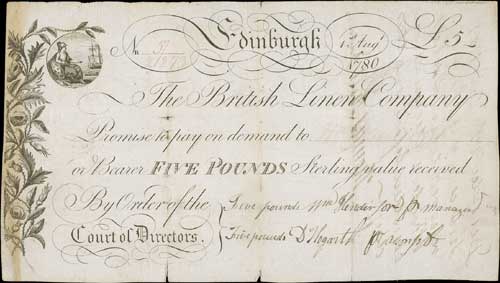 No Edinburgh 1st Augt 1780 £5
The British Linen Company
Promise to pay on demand to
or Bearer FIVE POUNDS Sterling value received
By Order of the Five pounds Wm Henderson pr manager
Court of Directors. Five pounds D Hogarth pr